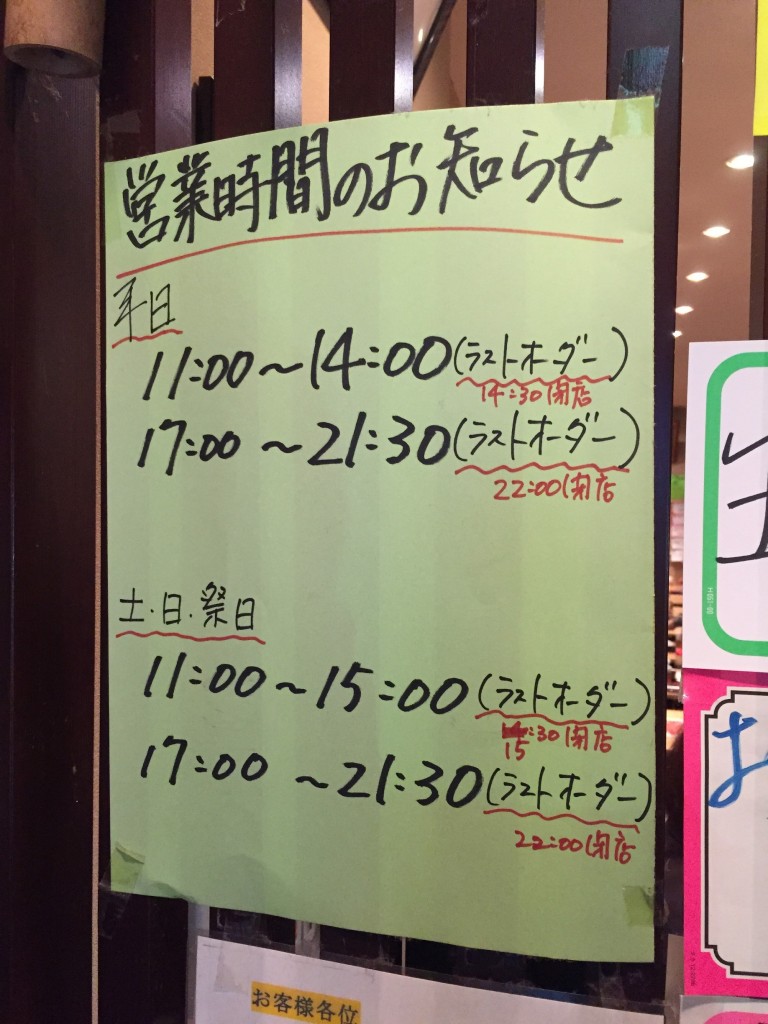 営業時間のお知らせ
平日
11:00～14:00(ラストオーダー)
14:30閉店
17:00～21:30(ラストオーダー)
22:00閉店
土・日・祭日
11:00～15:00(ラストオーダー)
15:30閉店
17:00～21:30(ラストオーダー)
22:00閉店
お客様各位
お